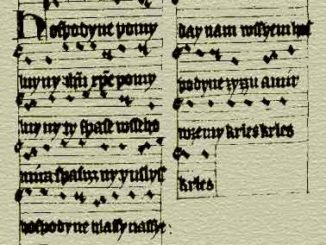 Hospodyne pomy
luy ny ihu xpe pomy
luy ny ty spase wseho
mira spasiz ny y uslys
hospodyne hlassy nasse
day nam wssyem hos
podyne zyzn a mir
wzemy krles krles
krles